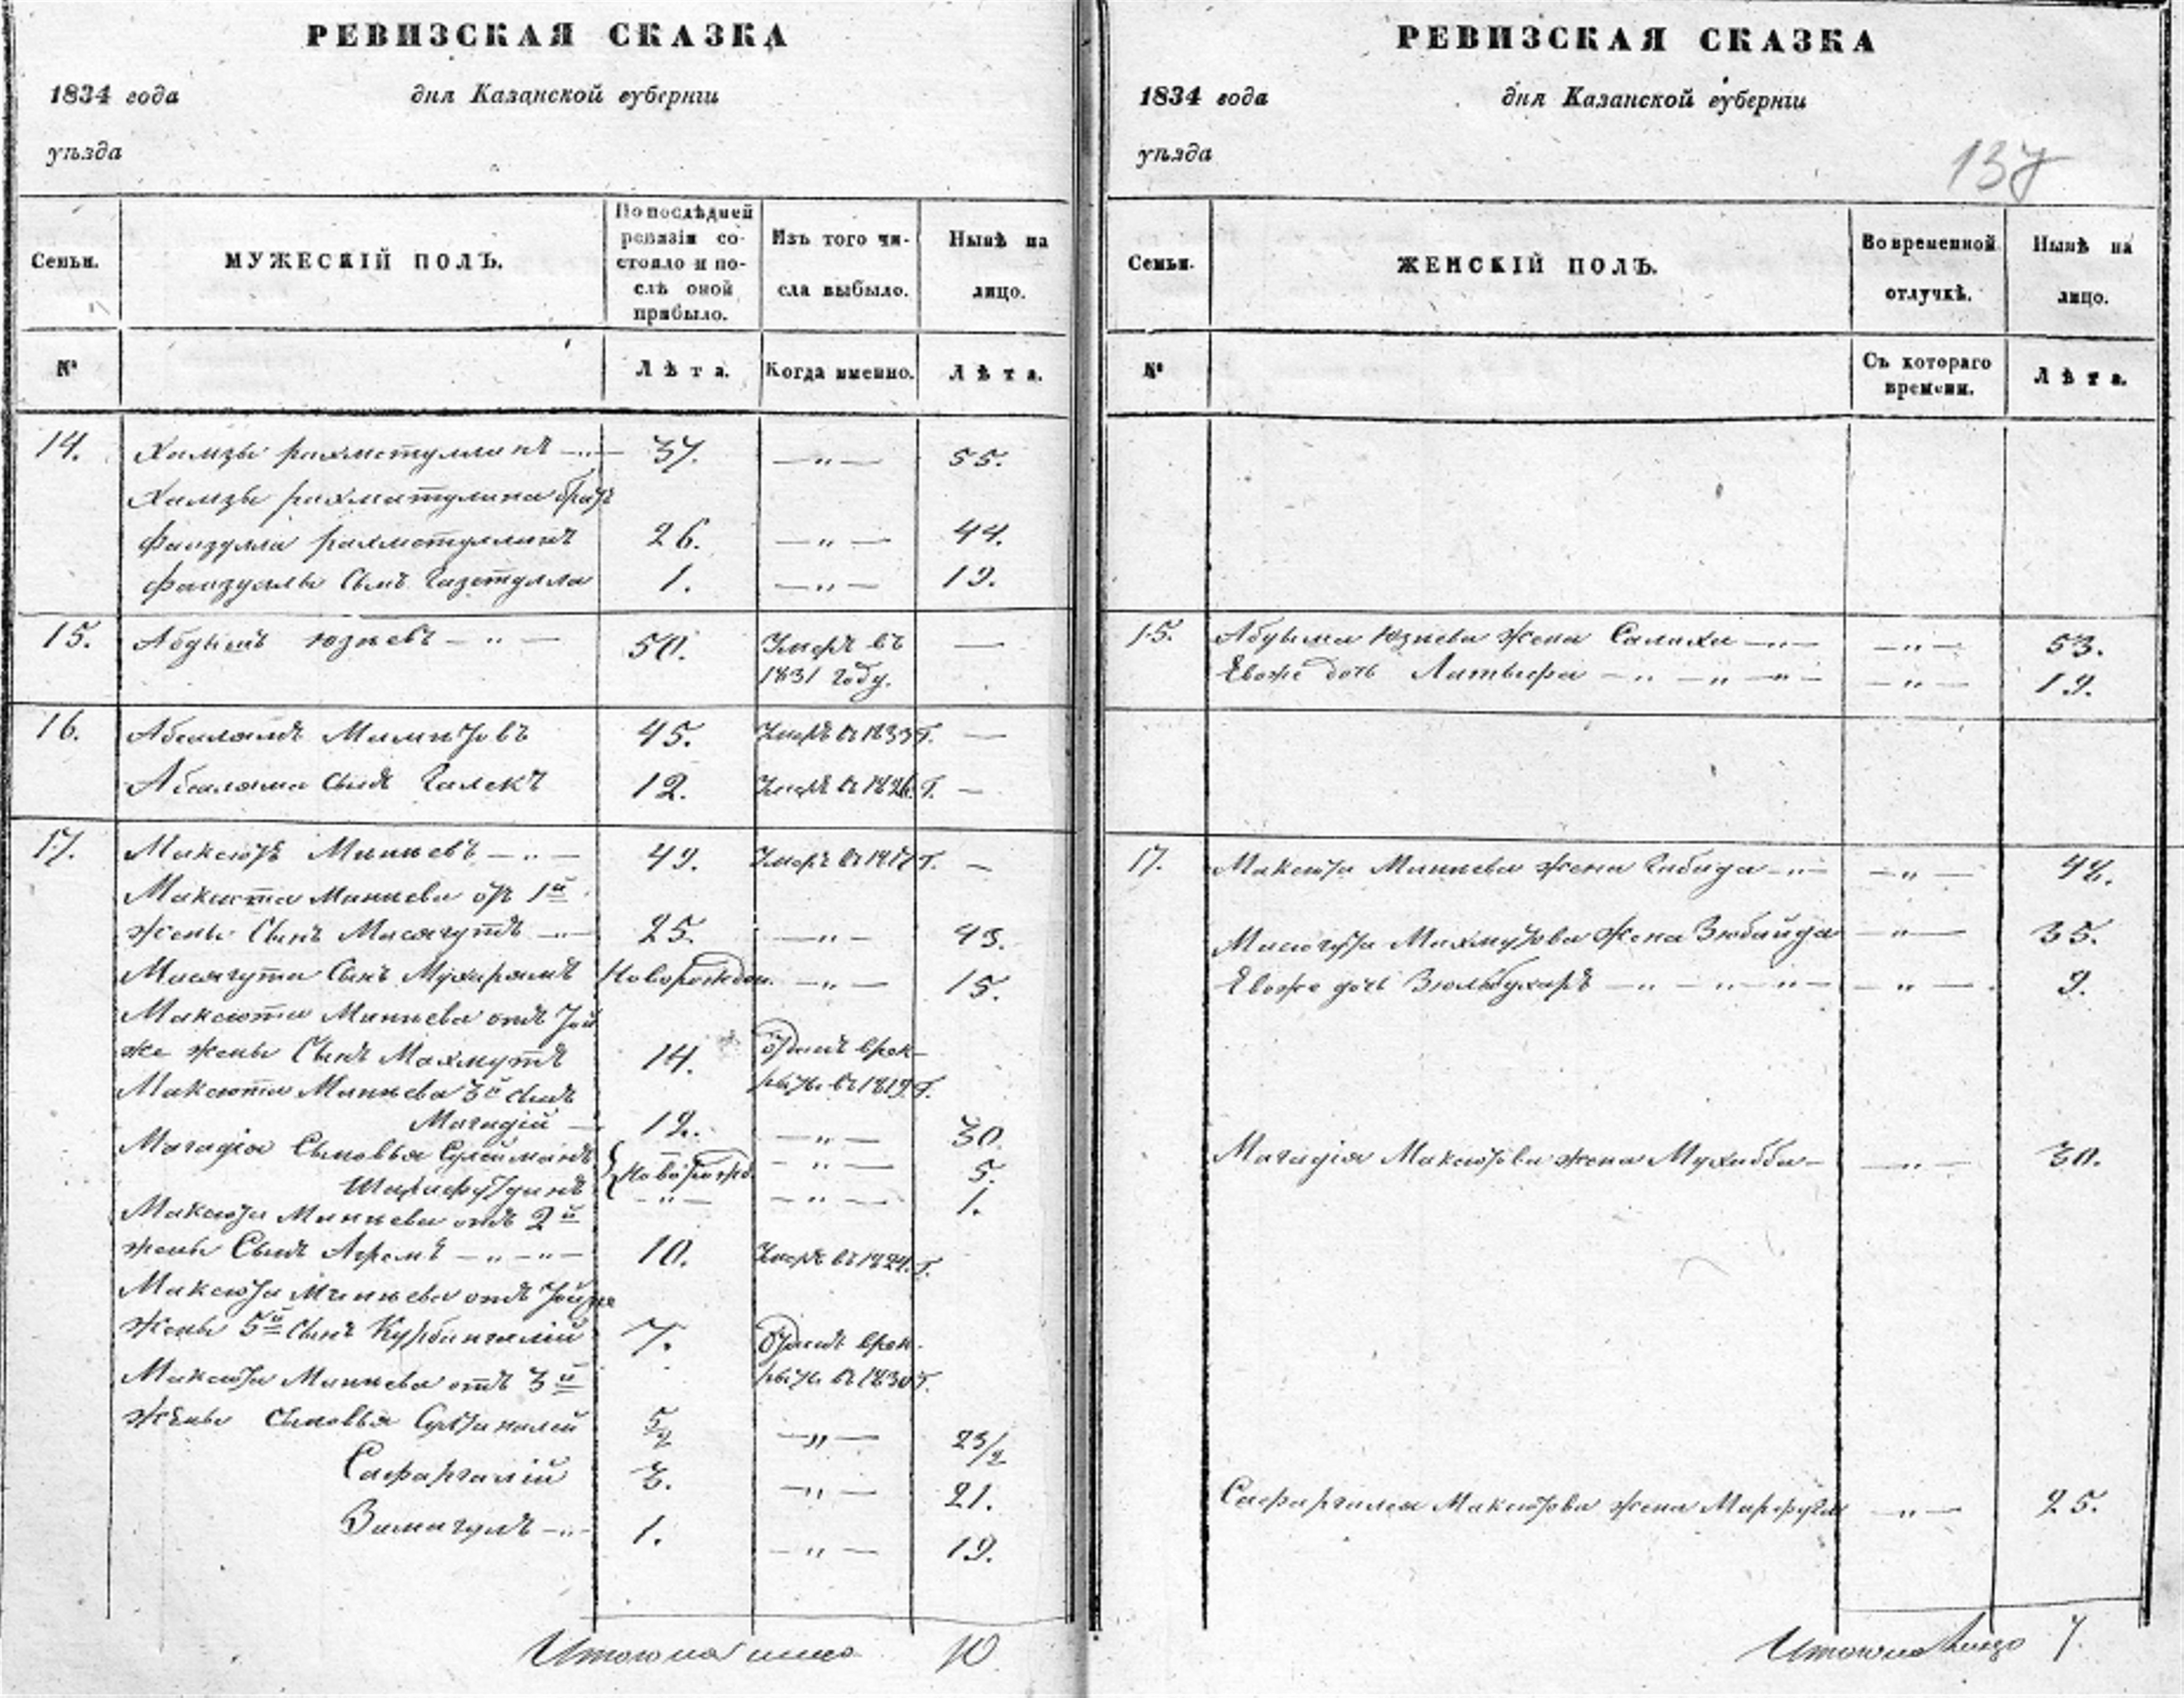 РЕВИЗСКАЯ СКАЗКА
1834 года дня Казанской губернiи
уѣзда
Семьи. МУЖЕСКІЙ ПОЛЪ. По послѣдней ревизіи состояло и послѣ оной прибыло. Изъ того числа выбыло. Нынѣ на лицо.
№ Лѣта. Когда именно. Лѣта.
14. Хамзы рахметуллинъ 37. 55.
Хамзы рахматулина братъ
Фаизулла рахметуллинъ 26. 44.
Фаизуллы Сынъ Гизетулла 1. 19.
15. Юзѣевъ 50. Умеръ въ —
1831 году.
16. 45. Умеръ въ 1833 Г. —
Сынъ Галекъ 12. Умеръ въ 1826. Г. —
17. Максютъ Минѣевъ 49. Умеръ въ Г. —
Максюта Минѣева отъ 1й
жены Сынъ Масягутъ 25. 43.
Масягута Сынъ Мухарямъ Новорожден. 15.
Максюта Минѣева отъ той
же жены Сынъ Махмутъ 14. Отданъ врек-
руты въ 1819 Г.
Максюта Минѣева 3й сынъ
Магадій 12. 30.
Магадія Сыновья Сулейманъ Новорожд. 5.
Шарафутдинъ 1.
Максюта Минѣева отъ 2й
жены Сынъ Агремъ 10. Умеръ въ 1824. Г.
Максюта Минѣева отъ той же
жены 5й Сынъ Курбангалій 7. Отданъ врек-
руты въ 1830 Г.
Максюта Минѣева отъ 3й
жены Сыновья Султангалей 5/2 23/2
Сафаргалій 3. 21.
Зимагулъ 1. 19.
Итого на лицо 10
РЕВИЗСКАЯ СКАЗКА
1834 года дня Казанской губернiи
уѣзда
137
Семьи. ЖЕНСКІЙ ПОЛЪ. Во временной отлучкѣ. Нынѣ на лицо.
№ Съ котораго времени. Лѣта.
15. Юзѣева жена Салиха 53.
Евоже дочь Латыфа 19.
17. Максюта Минѣева жена Габида 48.
Масягута Махмутова жена Зюбайда 35.
Евоже дочь Зюльбухаръ 9.
Магадія Максютова жена Мухибба 30.
Сафаргалея Максютова жена 25.
Итого на лицо 7.